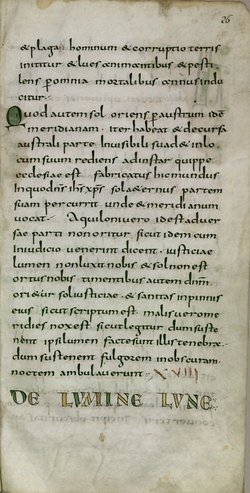 26
& plaga hominum & corruptio terris
inicitur & lues animantibus & pesti
lens per omnia mortalibus annus indu
citur.
Quod autem sol oriens p austrum idē
meridianam. iter habeat & decursa
australi parte Invisibili vadat in lo
cum suum rediens ad instar quippe
ecclesiae est fabricatus hic mundus
In quo dn̄s ih̄s xp̄s sol aeternus partem
suam percurrit unde & meridianum
vocat. Aquiloni vero id est adver
sae parti non oritur sicut idem cum
In iudicio venerint dicent. iusticiae
lumen non luxit nobis & sol non est
ortus nobis timentibus autem dnm̄
ori&ur sol iusticiae & sanitas in pinnis
eius sicut scriptum est malis vero me
ridies nox est sicut legitur dum suste
nent ipsi lumen factae sunt illis tenebrae.
dum sustenent fulgorem in obscuram
noctem ambulaverunt. XVIII
DE LUMINE LUNE